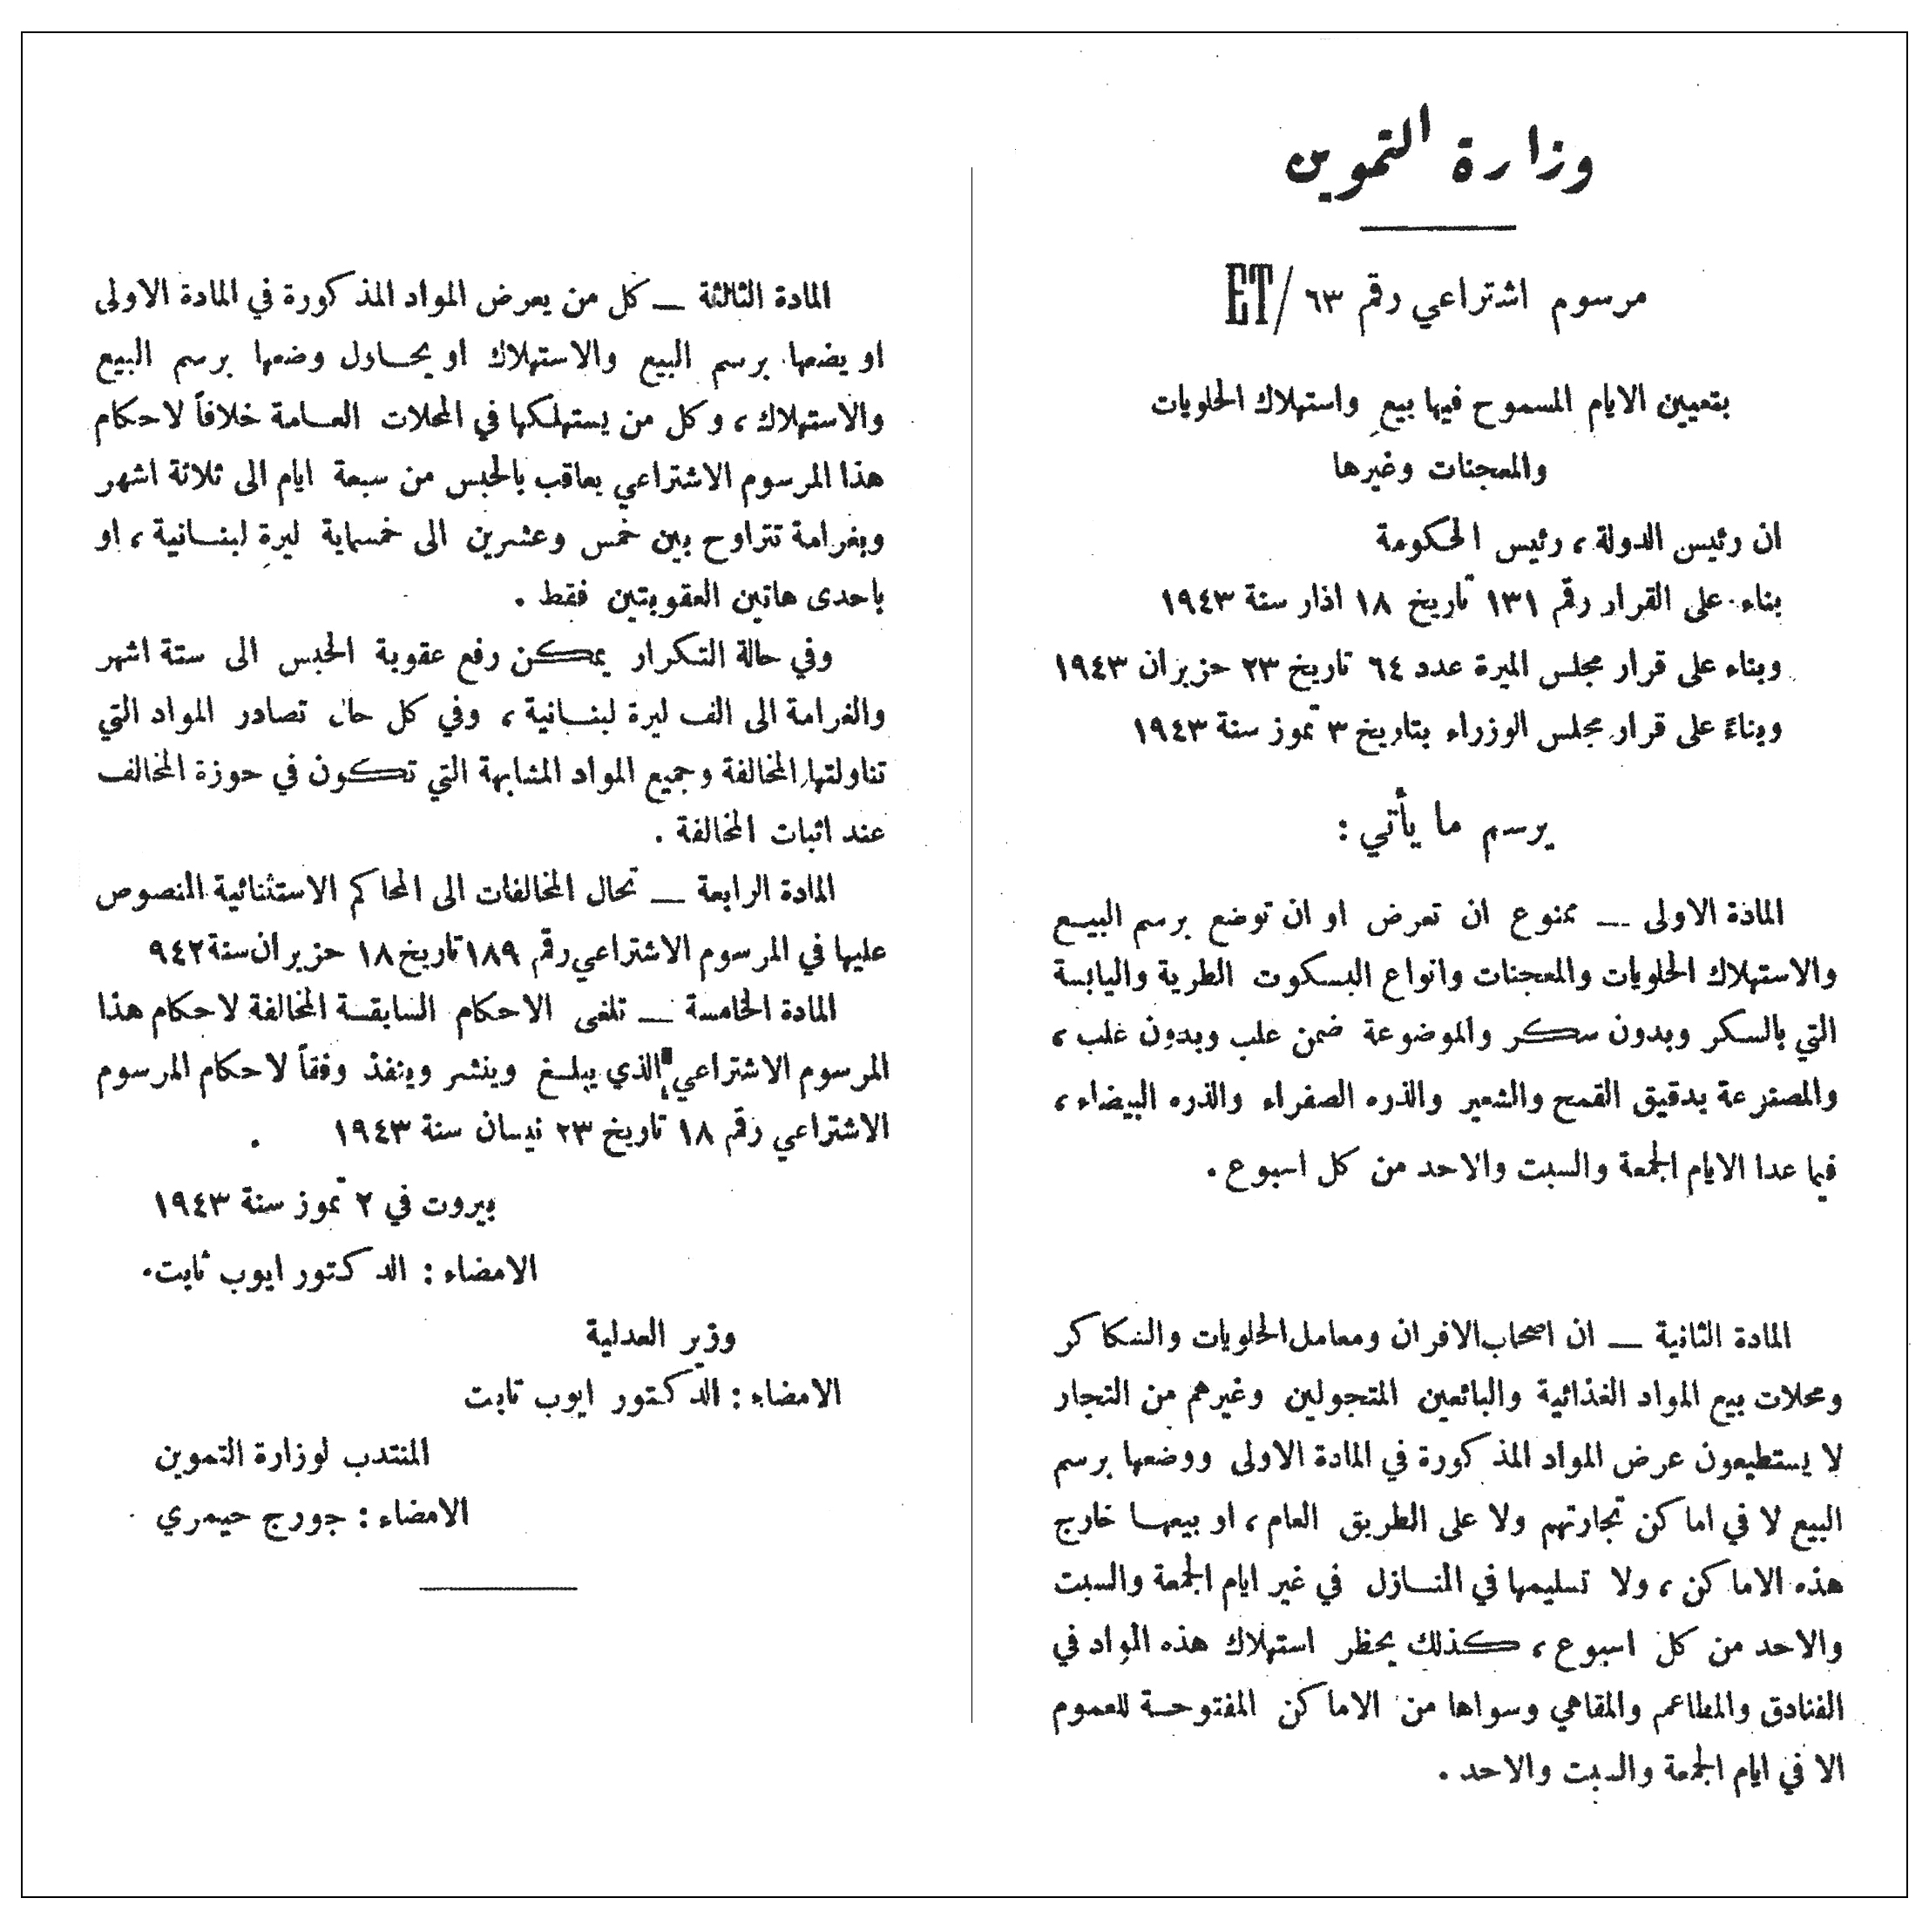 وزارة التموين
مرسوم اشتراعي رقم ٦٣ /ET
بتعيين الايام المسموح فيها بيع واستهلاك الحلويات
والمعجنات وغيرها
ان رئيس الدولة، رئيس الحكومة
بناء على القرار رقم ١٣١ تاريخ ١٨ اذار سنة ١٩٤٣
وبناء على قرار مجلس الميرة عدد ٦٤ تاريخ ٢٣ حزيران ١٩٤٣
وبناءً على قرار مجلس الوزراء بتاريخ ٣ تموز سنة ١٩٤٣
يرسم ما يأتي :
المادة الاولى — ممنوع ان تعرض او ان توضع برسم البيع
والاستهلاك الحلويات والمعجنات وانواع البسكوت الطرية واليابسة
التي بالسكر وبدون سكر والموضوعة ضمن علب وبدون علب،
والمصنوعة بدقيق القمح والشعير والذره الصفراء والذره البيضاء،
فيما عدا الايام الجمعة والسبت والاحد من كل اسبوع .
المادة الثانية — ان اصحاب الافران ومعامل الحلويات والسكاكر
ومحلات بيع المواد الغذائية والبائعين المتجولين وغيرهم من التجار
لا يستطيعون عرض المواد المذكورة في المادة الاولى ووضعها برسم
البيع لا في اماكن تجارتهم ولا على الطريق العام، او بيعها خارج
هذه الاماكن، ولا تسليمها في المنازل في غير ايام الجمعة والسبت
والاحد من كل اسبوع، كذلك يحظر استهلاك هذه المواد في
الفنادق والمطاعم والمقاهي وسواها من الاماكن المفتوحة للعموم
الا في ايام الجمعة والسبت والاحد .
المادة الثالثة — كل من يعرض المواد المذكورة في المادة الاولى
او يضعها برسم البيع والاستهلاك او يحاول وضعها برسم البيع
والاستهلاك، وكل من يستهلكها في المحلات العامة خلافاً لاحكام
هذا المرسوم الاشتراعي يعاقب بالحبس من سبعة ايام الى ثلاثة اشهر
وبغرامة تتراوح بين خمس وعشرين الى خمسماية ليرة لبنانية، او
باحدى هاتين العقوبتين فقط .
وفي حالة التكرار يمكن رفع عقوبة الحبس الى ستة اشهر
والغرامة الى الف ليرة لبنانية، وفي كل حال تصادر المواد التي
تناولتها المخالفة وجميع المواد المشابهة التي تكون في حوزة المخالف
عند اثبات المخالفة .
المادة الرابعة — تحال المخالفات الى المحاكم الاستثنائية المنصوص
عليها في المرسوم الاشتراعي رقم ١٨٩ تاريخ ١٨ حزيران سنة ٩٤٢
المادة الخامسة — تلغى الاحكام السابقة المخالفة لاحكام هذا
المرسوم الاشتراعي الذي يبلغ وينشر وينفذ وفقاً لاحكام المرسوم
الاشتراعي رقم ١٨ تاريخ ٢٣ نيسان سنة ١٩٤٣ .
بيروت في ٢ تموز سنة ١٩٤٣
الامضاء : الدكتور ايوب ثابت
وزير العدلية
الامضاء : الدكتور ايوب ثابت
المنتدب لوزارة التموين
الامضاء : جورج حيمري